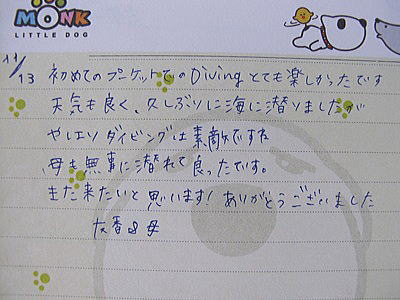 MONK
LITTLE DOG
11/13
初めてのプーケットでのDivingとても楽しかったです
天気も良く、久しぶりに海に潜りましたが
やはりダイビングは素敵ですね
母も無事に潜れて良ったです。
また来たいと思います!ありがとうございました
友香&母